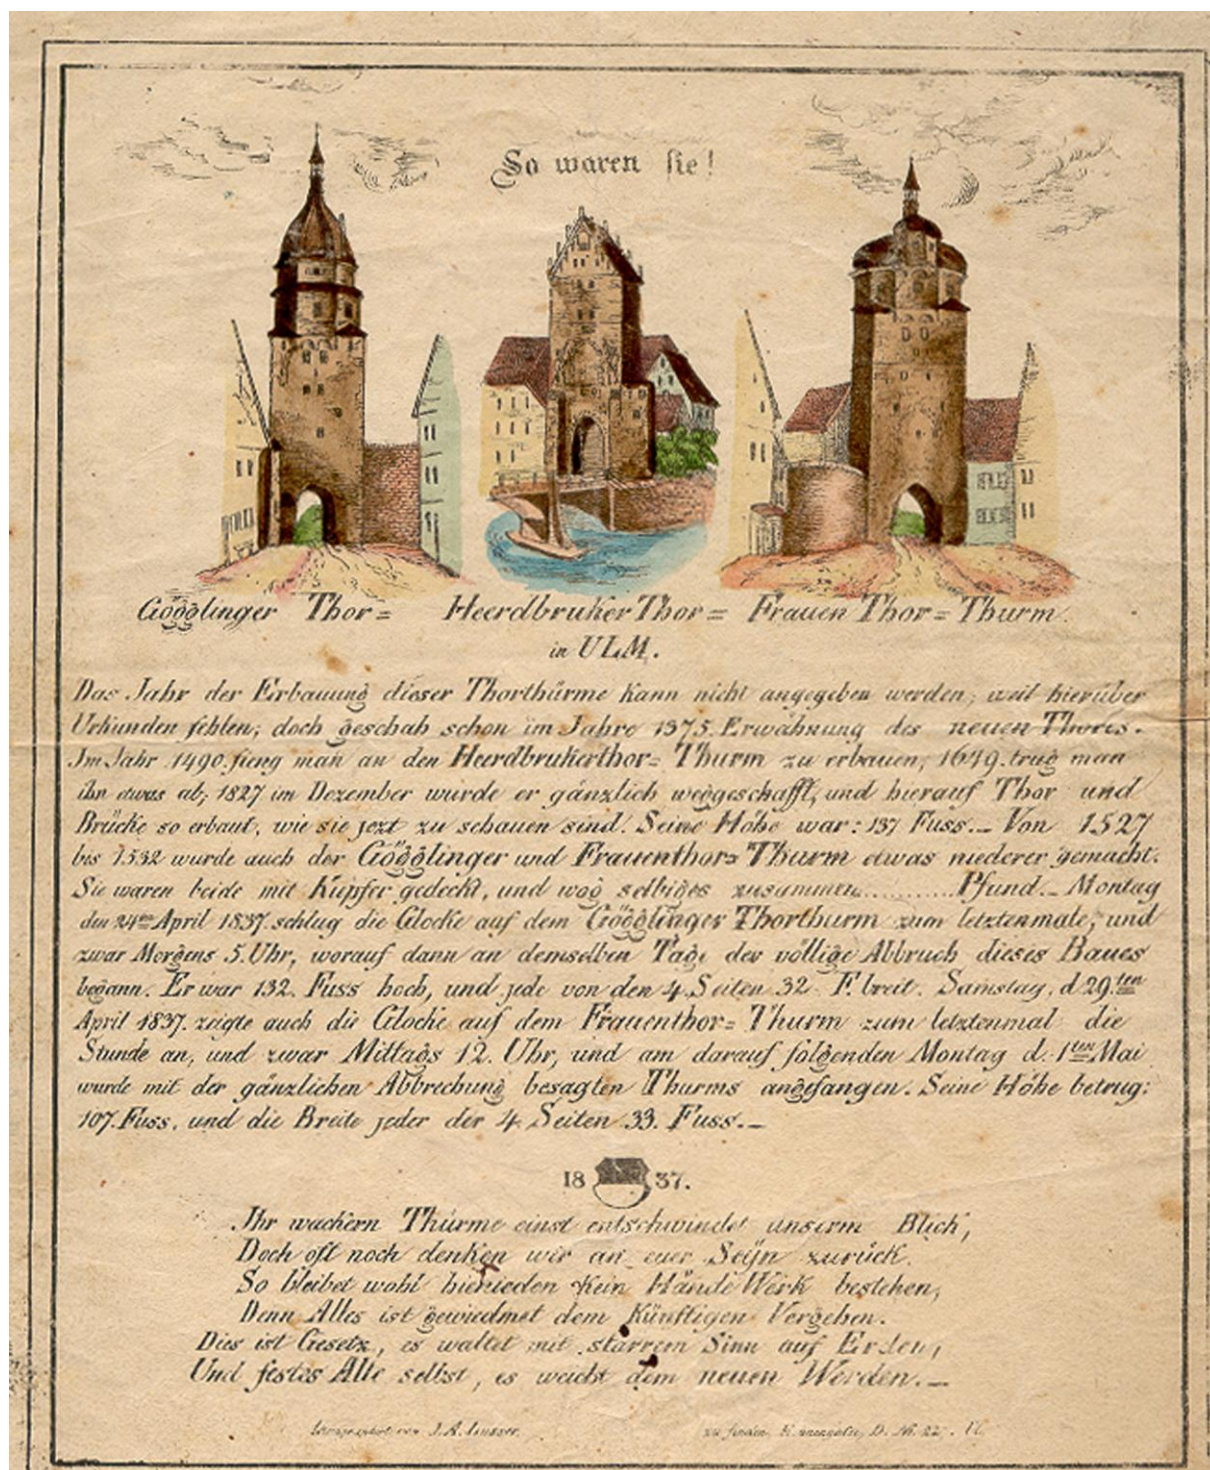 So waren sie!
Gögglinger Thor= Heerdbruker Thor= Frauen Thor=Thurm.
in ULM.
Das Jahr der Erbauung dieser Thorthürme kann nicht angegeben werden, weil hierüber
Urkunden fehlen; doch geschah schon im Jahre 1375. Erwähnung des neuen Thores.
Im Jahr 1490. fieng man an den Heerdbrukerthor= Thurm zu erbauen; 1649. trug man
ihn etwas ab; 1827 im Dezember wurde er gänzlich weggeschafft, und hierauf Thor und
Brücke so erbaut, wie sie jezt zu schauen sind. Seine Höhe war: 137 Fuss._ Von 1527
bis 1532 wurde auch der Gögglinger und Frauenthor= Thurm etwas niederer gemacht.
Sie waren beide mit Kupfer gedeckt, und wog selbiges zusammen..........Pfund._ Montag
den 24ten April 1837. schlug die Glocke auf dem Gögglinger Thorthurm zum letztenmale, und
zwar Morgens 5. Uhr, worauf dann an demselben Tage der völlige Abbruch dieses Baues
begann. Er war 132. Fuss hoch, und jede von den 4. Seiten 32 F. breit. Samstag, d 29.ten
April 1837. zeigte auch die Glocke auf dem Frauenthor= Thurm zum letztenmal die
Stunde an, und zwar Mittags 12. Uhr, und am darauf folgenden Montag d. 1ten Mai
wurde mit der gänzlichen Abbrechung besagten Thurms angefangen. Seine Höhe betrug:
107. Fuss, und die Breite jeder der 4. Seiten 33. Fuss._
18 37.
Ihr wackern Thürme einst entschwindet unserm Blick,
Doch oft noch denken wir an euer Seÿn zurück.
So bleibet wohl hienieden kein Hände Werk bestehen,
Denn Alles ist gewiedmet dem Künftigen Vergehen.
Dies ist Gesetz, es waltet mit starrem Sinn auf Erden,
Und festes Alte selbst, es weicht dem neuen Werden._
von J. A.
zu finden, D. N. 22.